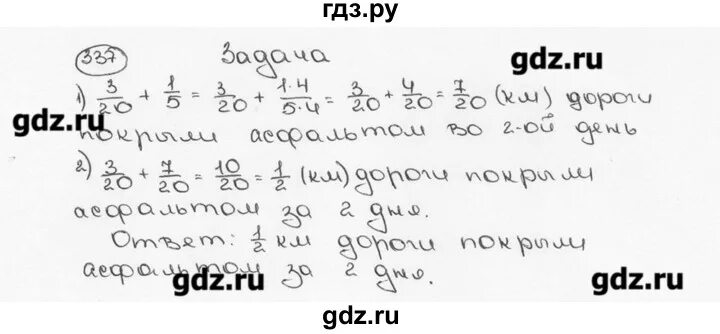 гдз.ру
337 Задача
gdz.ru
1) 3/20 + 1/5 = 3/20 + 1·4/5·4 = 3/20 + 4/20 = 7/20 (км) дороги
gdz.ru
покрыли асфальтом во 2-ой день
2) 3/20 + 7/20 = 10/20 = 1/2 (км) дороги покрыли
асфальтом за 2 дня.
Ответ: 1/2 км дороги покрыли
асфальтом за 2 дня.
gdz.ru
gdz.ru
gdz.ru